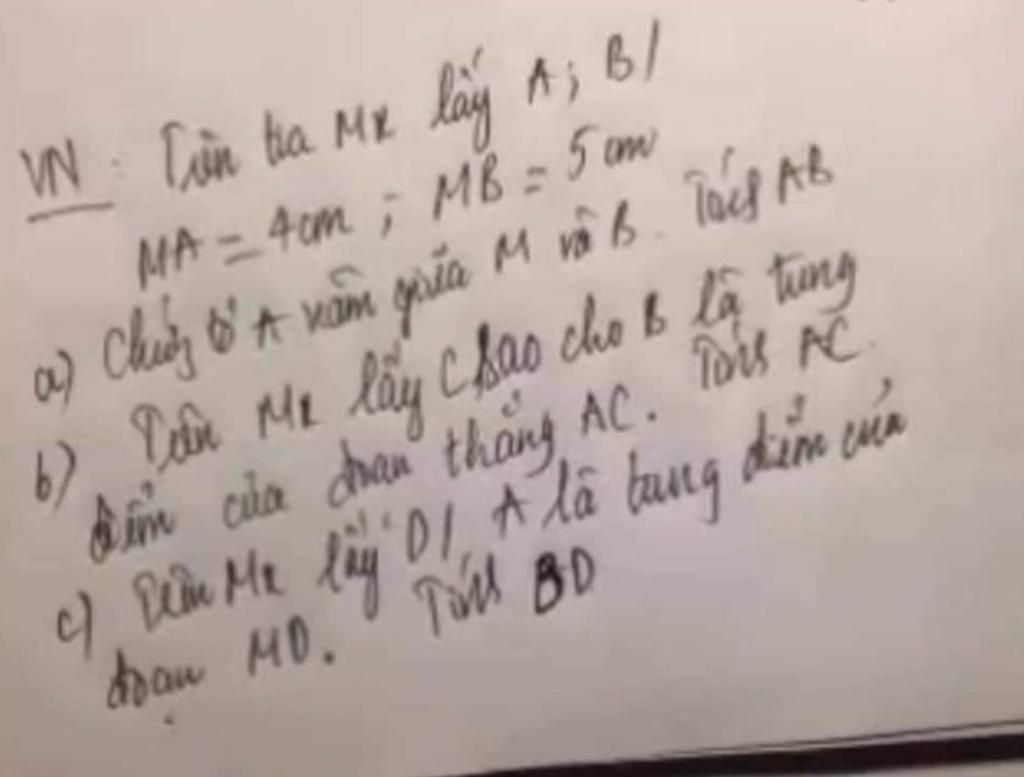 VN: Trên tia Mx lấy A; B/
MA = 4cm; MB = 5cm
a) Chứng tỏ A nằm giữa M và B. Tính AB
b) Trên Mx lấy C sao cho B là trung
điểm của đoạn thẳng AC. Tính AC.
c) Trên Mx lấy D/ A là trung điểm của
đoạn MD. Tính BD